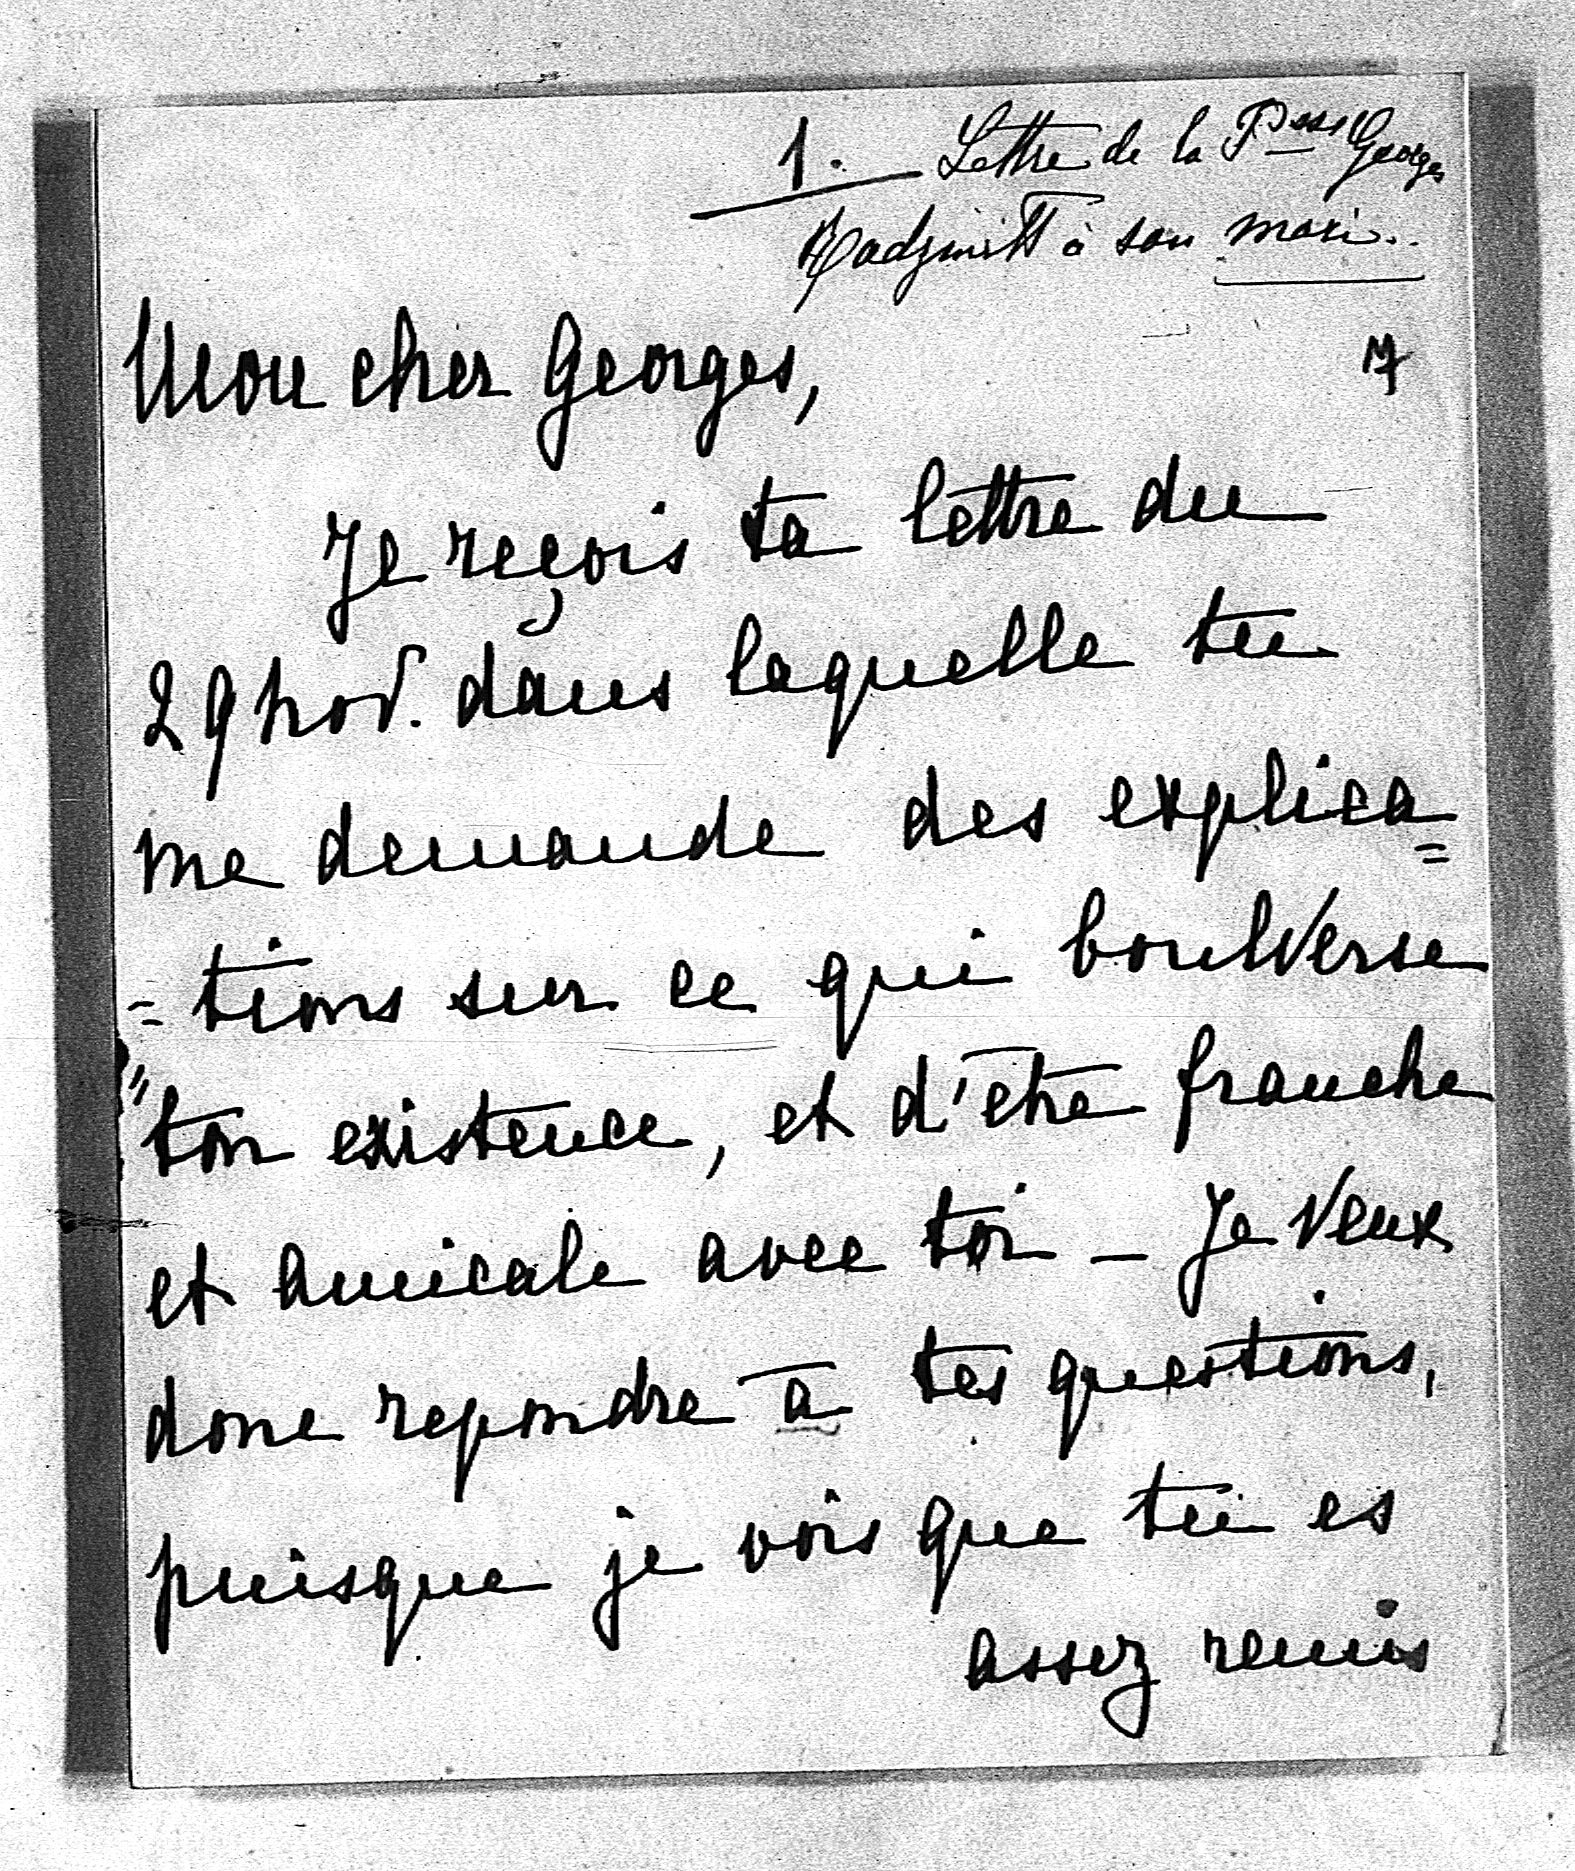 1. Lettre de la Pesse Georges
Radziwill à son mari..
7
Mon cher Georges,
Je reçois ta lettre du
29 nov. dans laquelle tu
me demande des explica=
=tions sur ce qui boulverse
ton existence, et d'etre franche
et amicale avec toi — Je veux
donc repondre a tes questions,
puisque je vois que tu es
assez remis